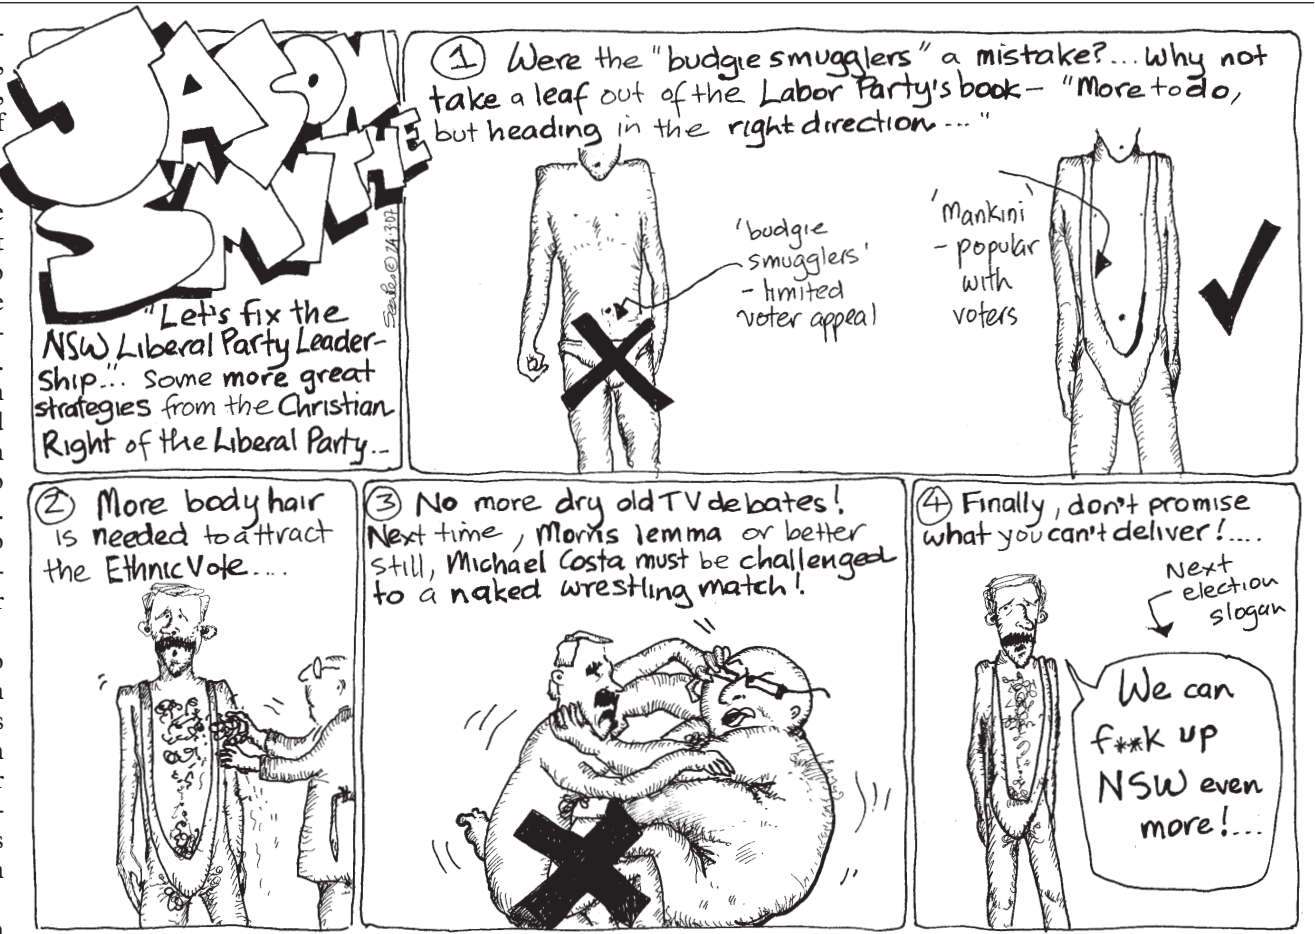 JASON
SMITHE
"Let's fix the
NSW Liberal Party Leader-
ship"... Some more great
strategies from the Christian
Right of the Liberal Party...
© 24307
1 Were the "budgie smugglers" a mistake?... Why not
take a leaf out of the Labor Party's book - "More to do,
but heading in the right direction..."
'budgie
smugglers'
- limited
voter appeal
'Mankini'
- popular
with
voters
2 More body hair
is needed to attract
the Ethnic Vote....
3 No more dry old TV debates!
Next time, Morris Iemma or better
still, Michael Costa must be challenged
to a naked wrestling match!
4 Finally, don't promise
what you can't deliver!....
Next
election
slogan
We can
f**k up
NSW even
more!...